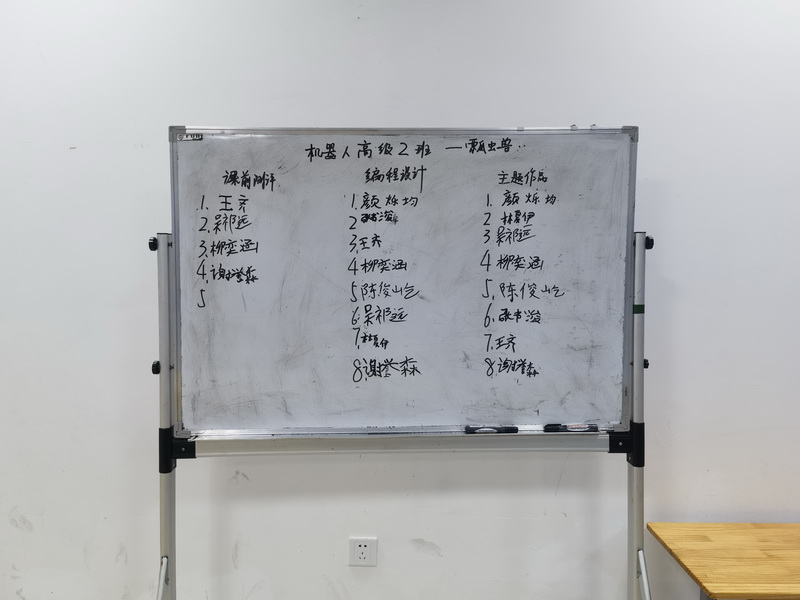 机器人高级2班 —瓢虫兽..
课前测评
1. 王齐
2. 吴祁远
3. 柳奕涵
4. 谢誉森
5
编程设计
1. 颜烁均
2
3. 王齐
4 柳奕涵
5 陈俊屹
6. 吴祁远
7.
8. 谢誉森
主题作品
1. 颜烁均
2 林夏伊
3 吴祁远
4 柳奕涵
5. 陈俊屹
6. 张书浚
7. 王齐
8. 谢誉森